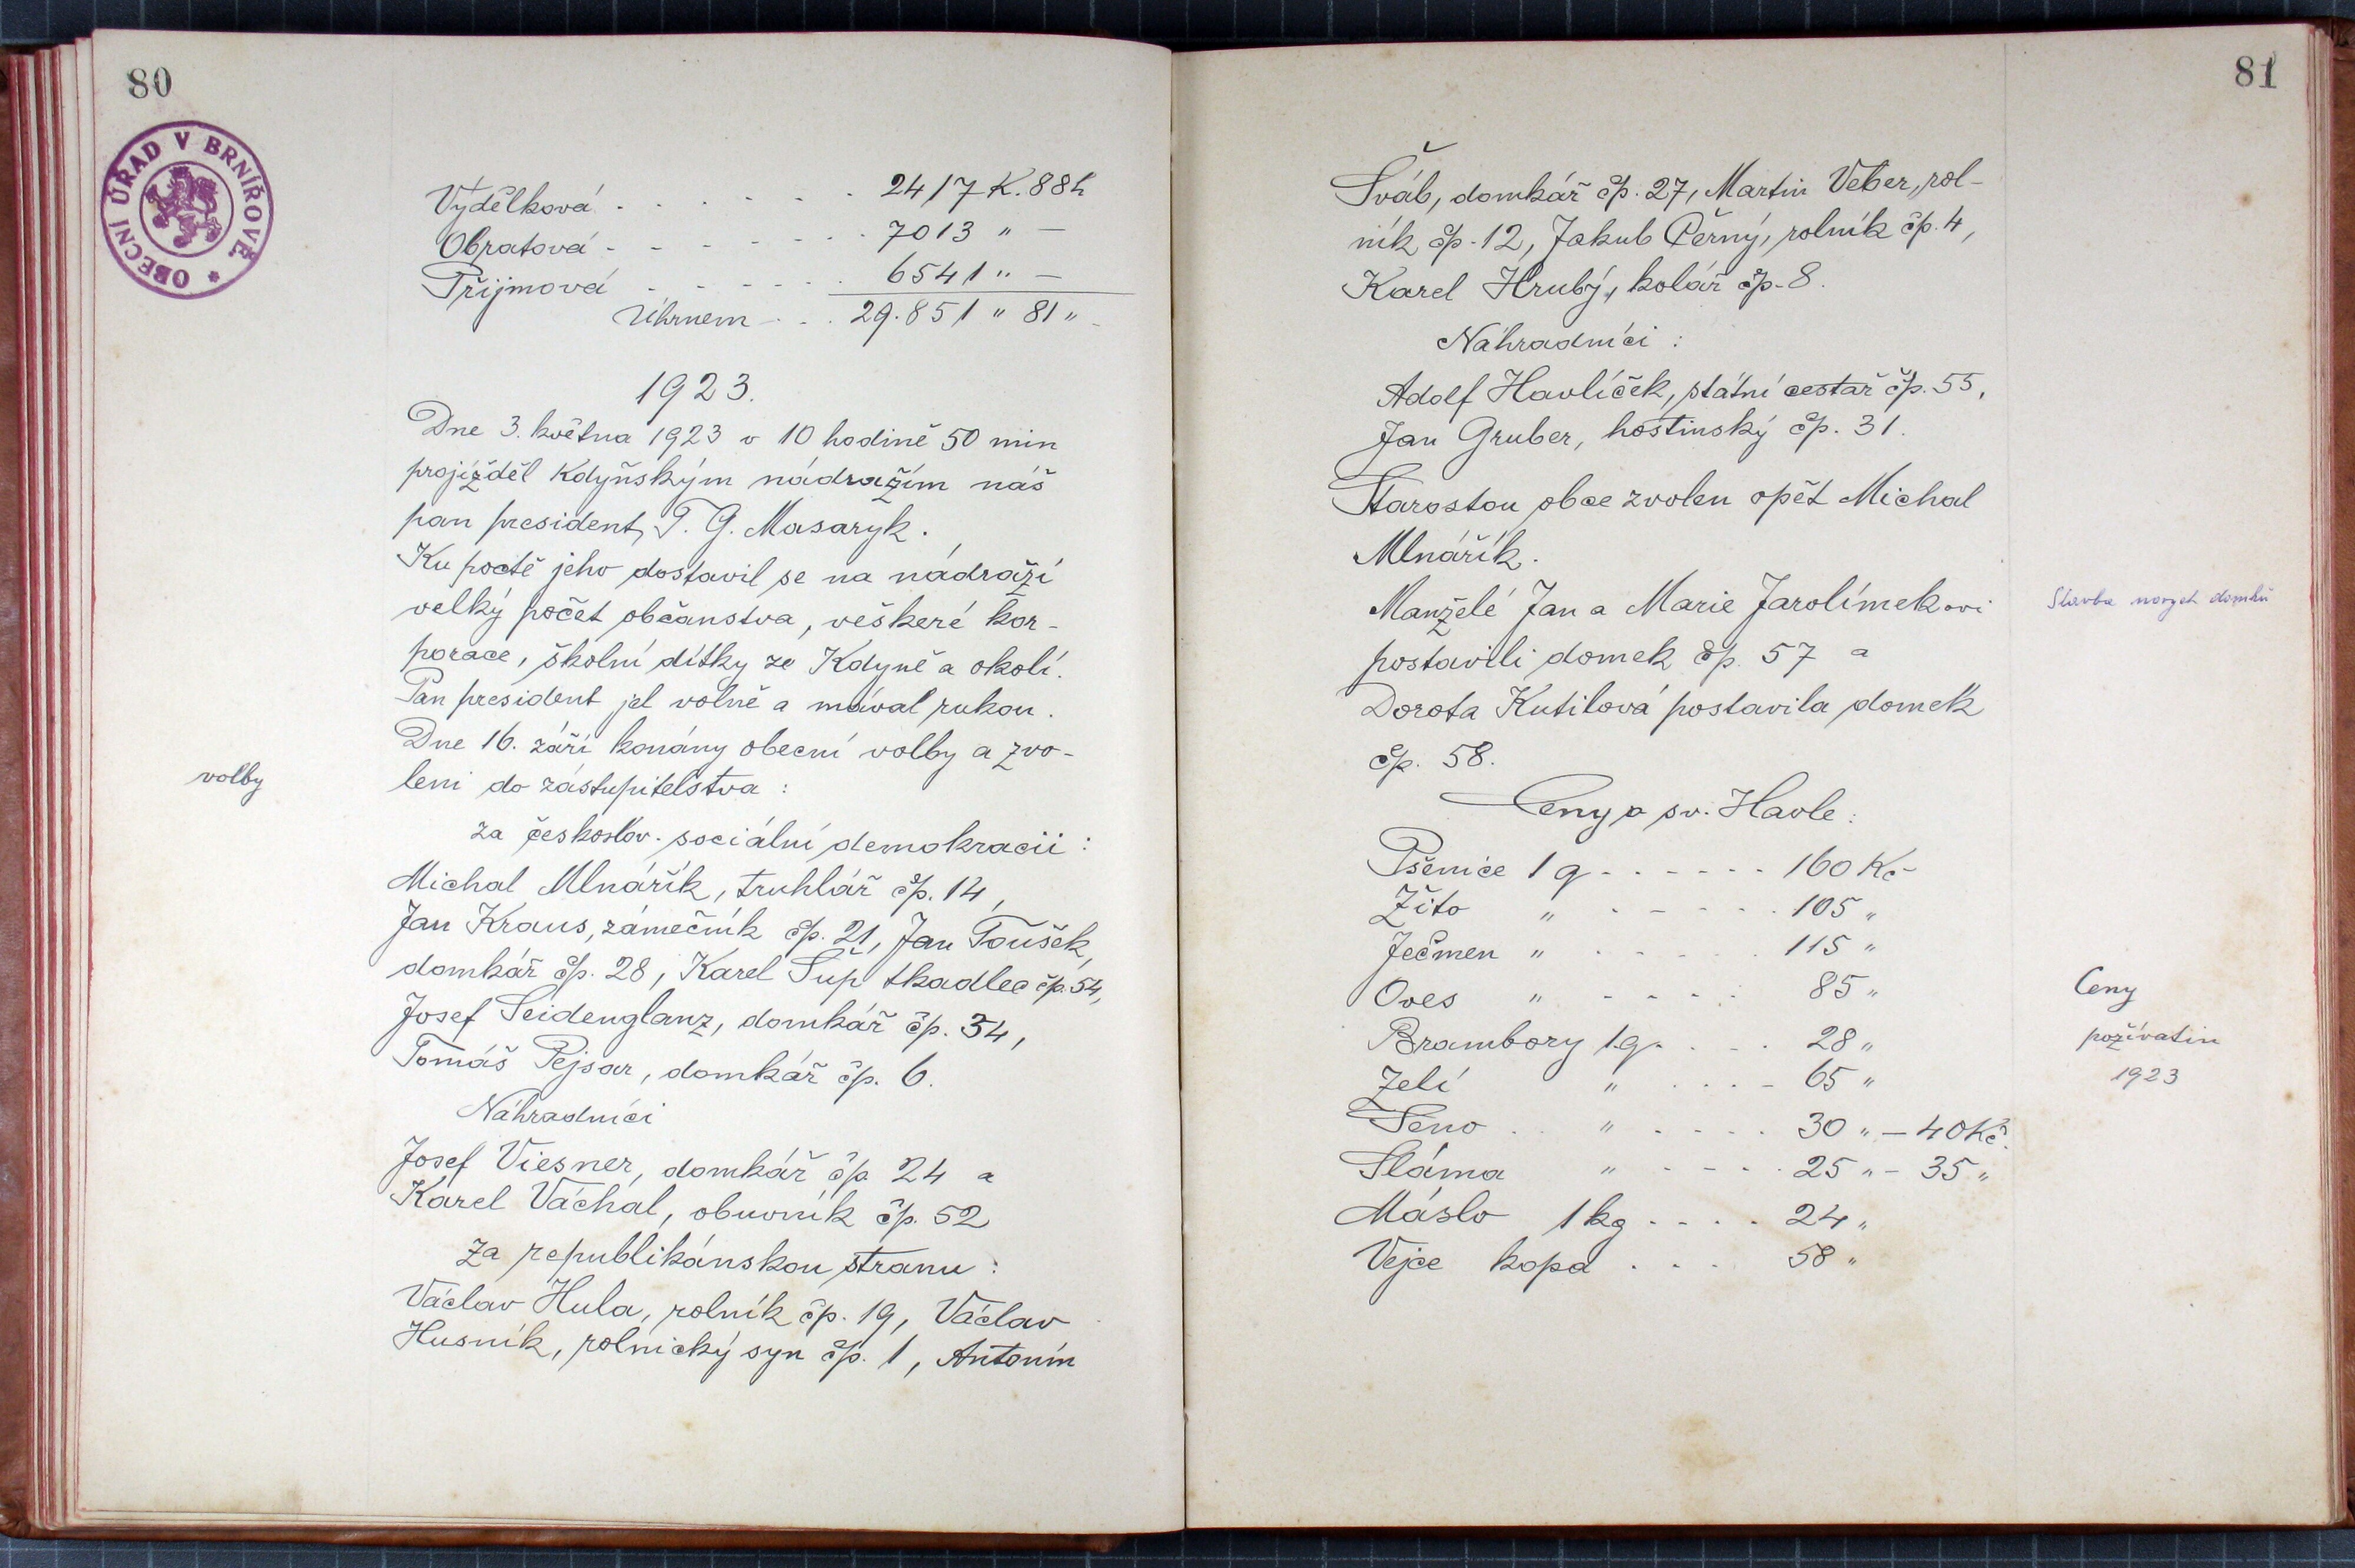 80
OBECNÍ ÚŘAD V BRNÍŘOVĚ *
Výdělková . . . . . . 2417 K. 88 h
Obratová - - - - - - . 7013 " —
Příjmová . - - - - . 6541 " —
Úhrnem - . . 29.851 " 81 "
1923.
Dne 3. května 1923 v 10 hodině 50 min
projížděl Kdyňským nádražím náš
pan president T. G. Masaryk.
Ku poctě jeho dostavil se na nádraží
velký počet občanstva, veškeré kor-
porace, školní dítky ze Kdyně a okolí.
Pan president jel volně a mával rukou.
Dne 16. září konány obecní volby a zvo-
volby
leni do zastupitelstva :
za českoslov. sociální demokracii :
Michal Mlnářík, truhlář čp. 14,
Jan Kraus, zámečník čp. 21, Jan Toušek,
domkář čp. 28, Karel Šup tkadlec čp. 54,
Josef Seidenglanz, domkář čp. 34,
Tomáš Pejsar, domkář čp. 6.
Náhradníci
Josef Viesner, domkář čp. 24 a
Karel Váchal, obuvník čp. 52
za republikánskou stranu :
Václav Hula, rolník čp. 19, Václav
Husník, rolnický syn čp. 1, Antonín
81
Šváb, domkář čp. 27, Martin Veber, rol-
ník čp. 12, Jakub Černý, rolník čp. 4,
Karel Hrubý, kolář čp. 8.
Náhradníci :
Adolf Havlíček, státní cestář čp. 55,
Jan Gruber, hostinský čp. 31.
Starostou obce zvolen opět Michal
Mlnářík.
Manželé Jan a Marie Jarolímkovi
Stavba nových domků
postavili domek čp. 57 a
Dorota Kutilová postavila domek
čp. 58.
Ceny o sv. Havle :
Pšenice 1 q - - - - - - 160 Kč
Žito " . - - - - . 105 "
Ječmen " . . . . . . 115 "
Oves " - - - - . 85 "
Ceny
požívatin
1923
Brambory 1 q. . . . 28 "
Zelí " . . . - 65 "
Seno . . " . . . . 30 " — 40 Kč.
Sláma " - - - . 25 " - 35 "
Máslo 1 kg . . . . 24 "
Vejce kopa . . . 58 "